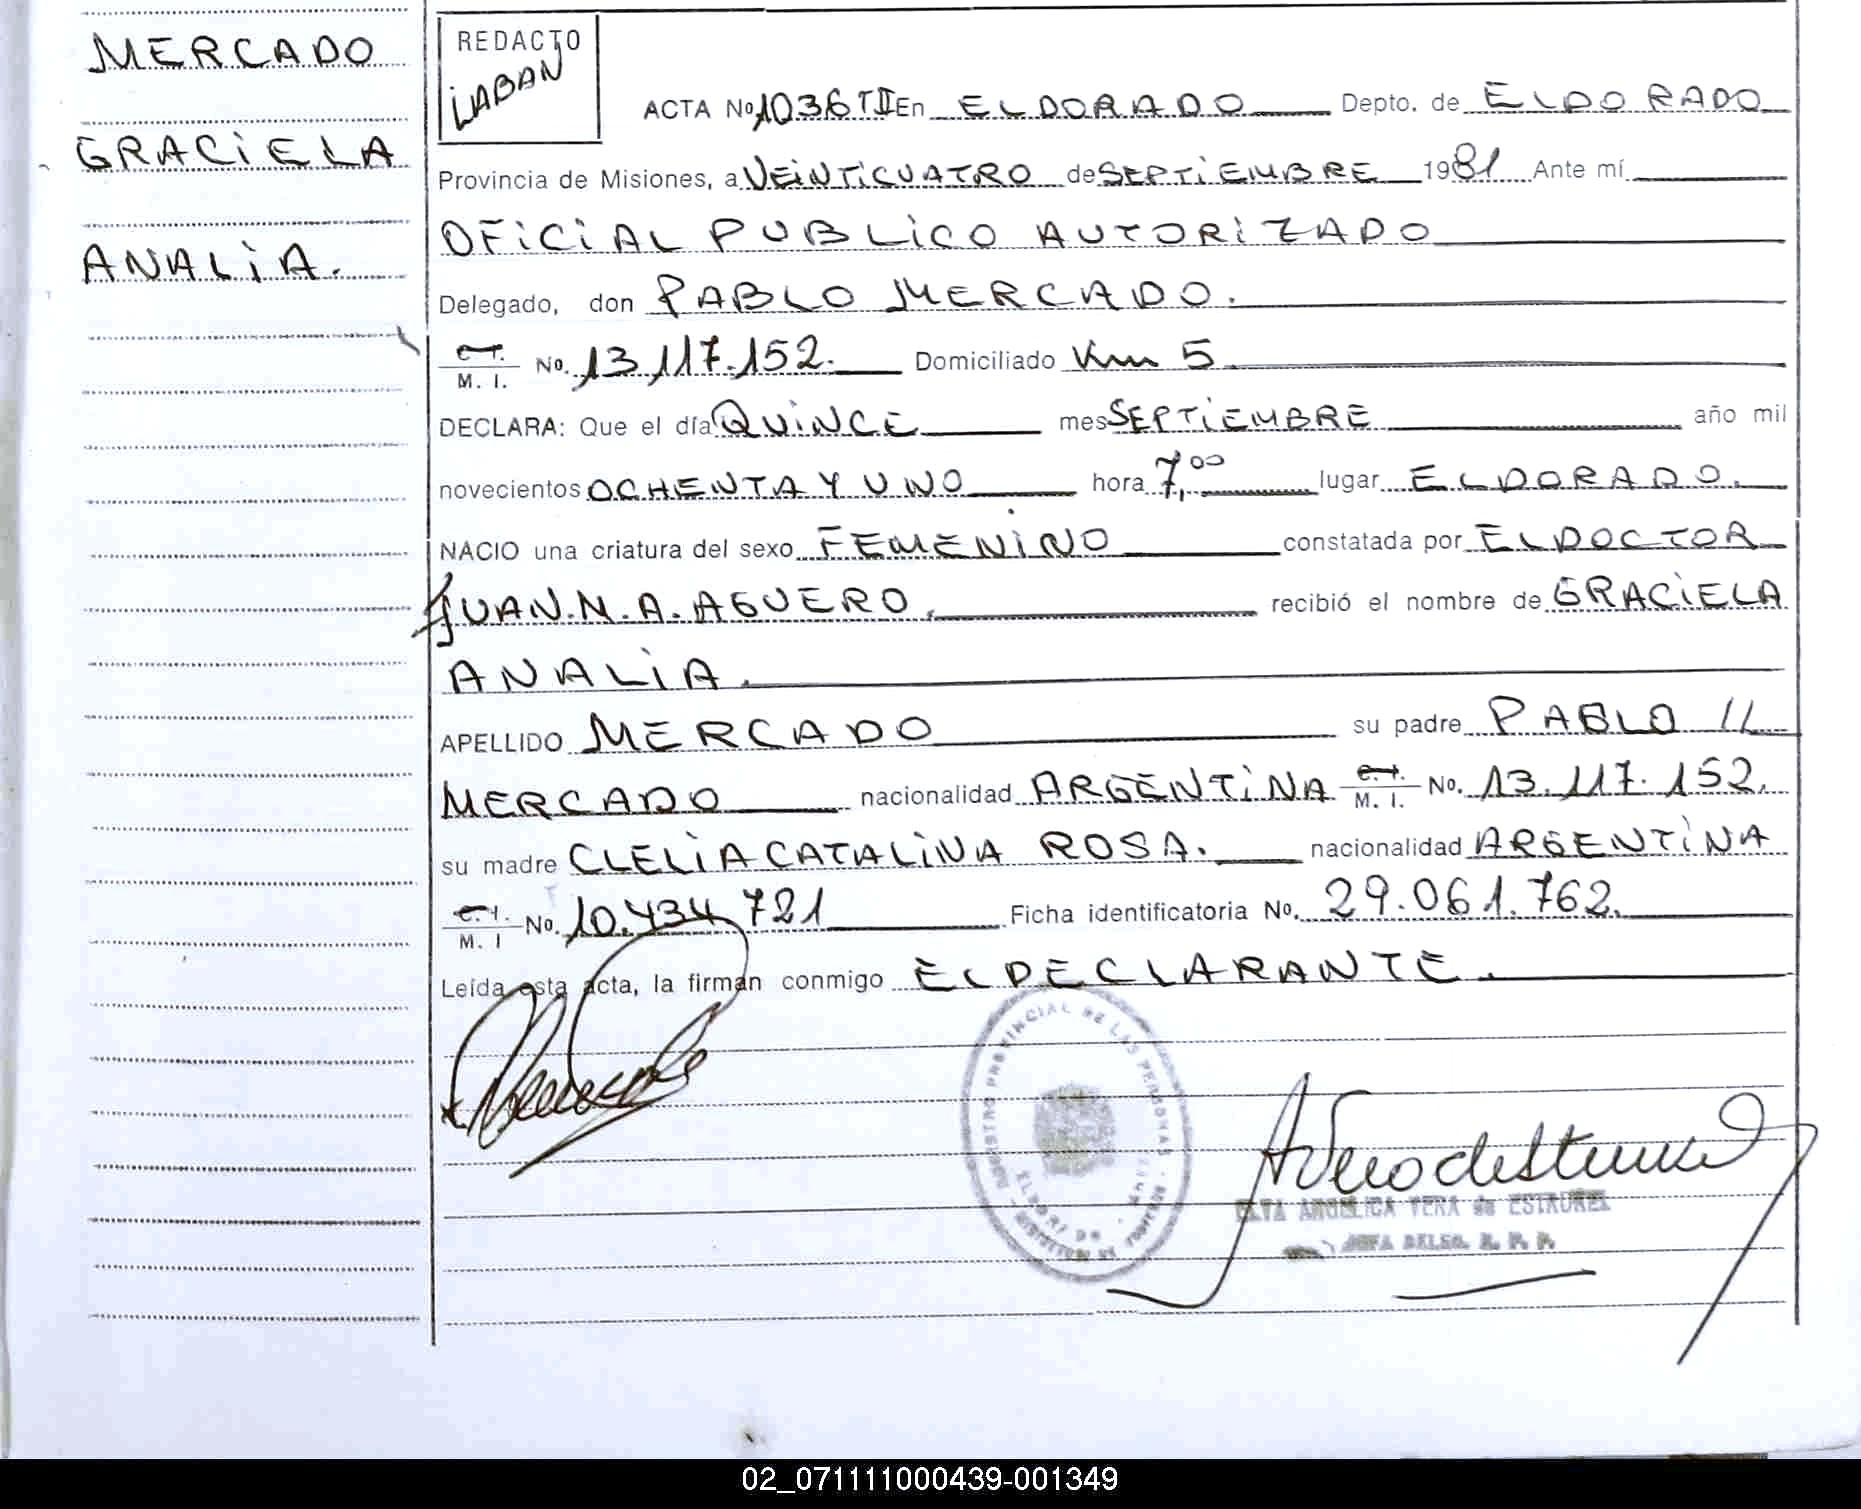 MERCADO
GRACIELA
ANALIA.
REDACTO
LABAN
ACTA No 1036 TII En ELDORADO Depto. de ELDORADO
Provincia de Misiones, a VEINTICUATRO de SEPTIEMBRE 1981 Ante mí
OFICIAL PUBLICO AUTORIZADO
Delegado, don PABLO MERCADO.
C. I. M. I. No. 13.117.152. Domiciliado Km 5
DECLARA: Que el día QUINCE mes SEPTIEMBRE año mil
novecientos OCHENTA Y UNO hora 7,00 lugar ELDORADO.
NACIO una criatura del sexo FEMENINO constatada por EL DOCTOR
JUAN.N.A.AGUERO. recibió el nombre de GRACIELA
ANALIA.
APELLIDO MERCADO su padre PABLO //
MERCADO nacionalidad ARGENTINA C. I. M. I. No. 13.117.152.
su madre CLELIA CATALINA ROSA. nacionalidad ARGENTINA
C. I. M. I No. 10.434.721 Ficha identificatoria No. 29.061.762.
Leída esta acta, la firman conmigo EL DECLARANTE.
REGISTRO PROVINCIAL DE LAS PERSONAS
ANGELICA VERA de
JEFA DELEG. R. P. P.
02_071111000439-001349